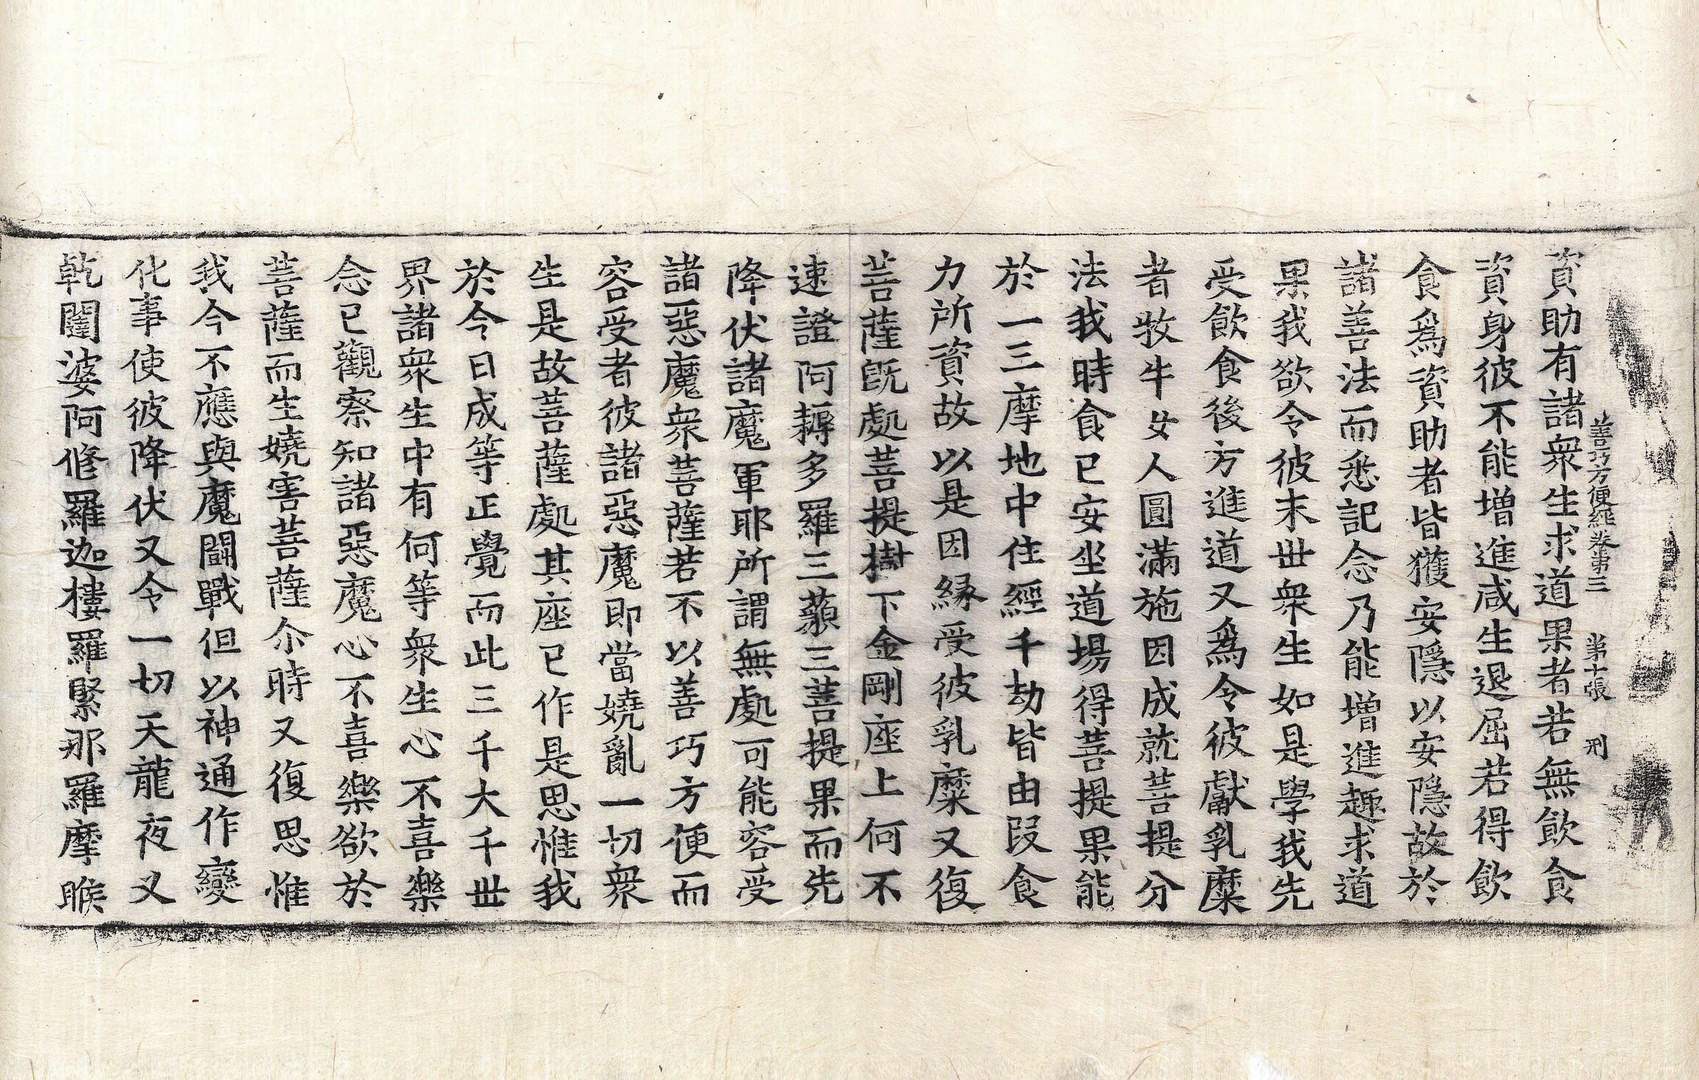 善巧方便經卷第三 第十張 刑
資助有諸衆生求道果者若無飲食
資身彼不能增進咸生退屈若得飲
食爲資助者皆獲安隱以安隱故於
諸善法而悉記念乃能增進趣求道
果我欲令彼末世衆生如是學我先
受飲食後方進道又爲令彼獻乳糜
者牧牛女人圓滿施因成就菩提分
法我時食已安坐道場得菩提果能
於一三摩地中住經千劫皆由段食
力所資故以是因緣受彼乳糜又復
菩薩旣處菩提樹下金剛座上何不
速證阿耨多羅三藐三菩提果而先
降伏諸魔軍耶所謂無處可能容受
諸惡魔衆菩薩若不以善巧方便而
容受者彼諸惡魔即當嬈亂一切衆
生是故菩薩處其座已作是思惟我
於今日成等正覺而此三千大千世
界諸衆生中有何等衆生心不喜樂
念已觀察知諸惡魔心不喜樂欲於
菩薩而生嬈害菩薩尒時又復思惟
我今不應與魔鬪戰但以神通作變
化事使彼降伏又令一切天龍夜叉
乾闥婆阿修羅迦樓羅緊那羅摩睺